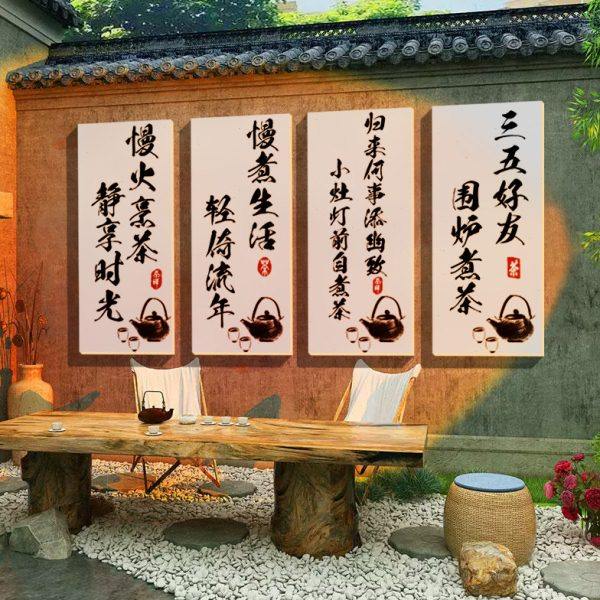 慢火烹茶
静享时光
慢煮生活
轻倚流年
归来何事添幽致
小灶灯前自煮茶
三五好友
围炉煮茶
茶